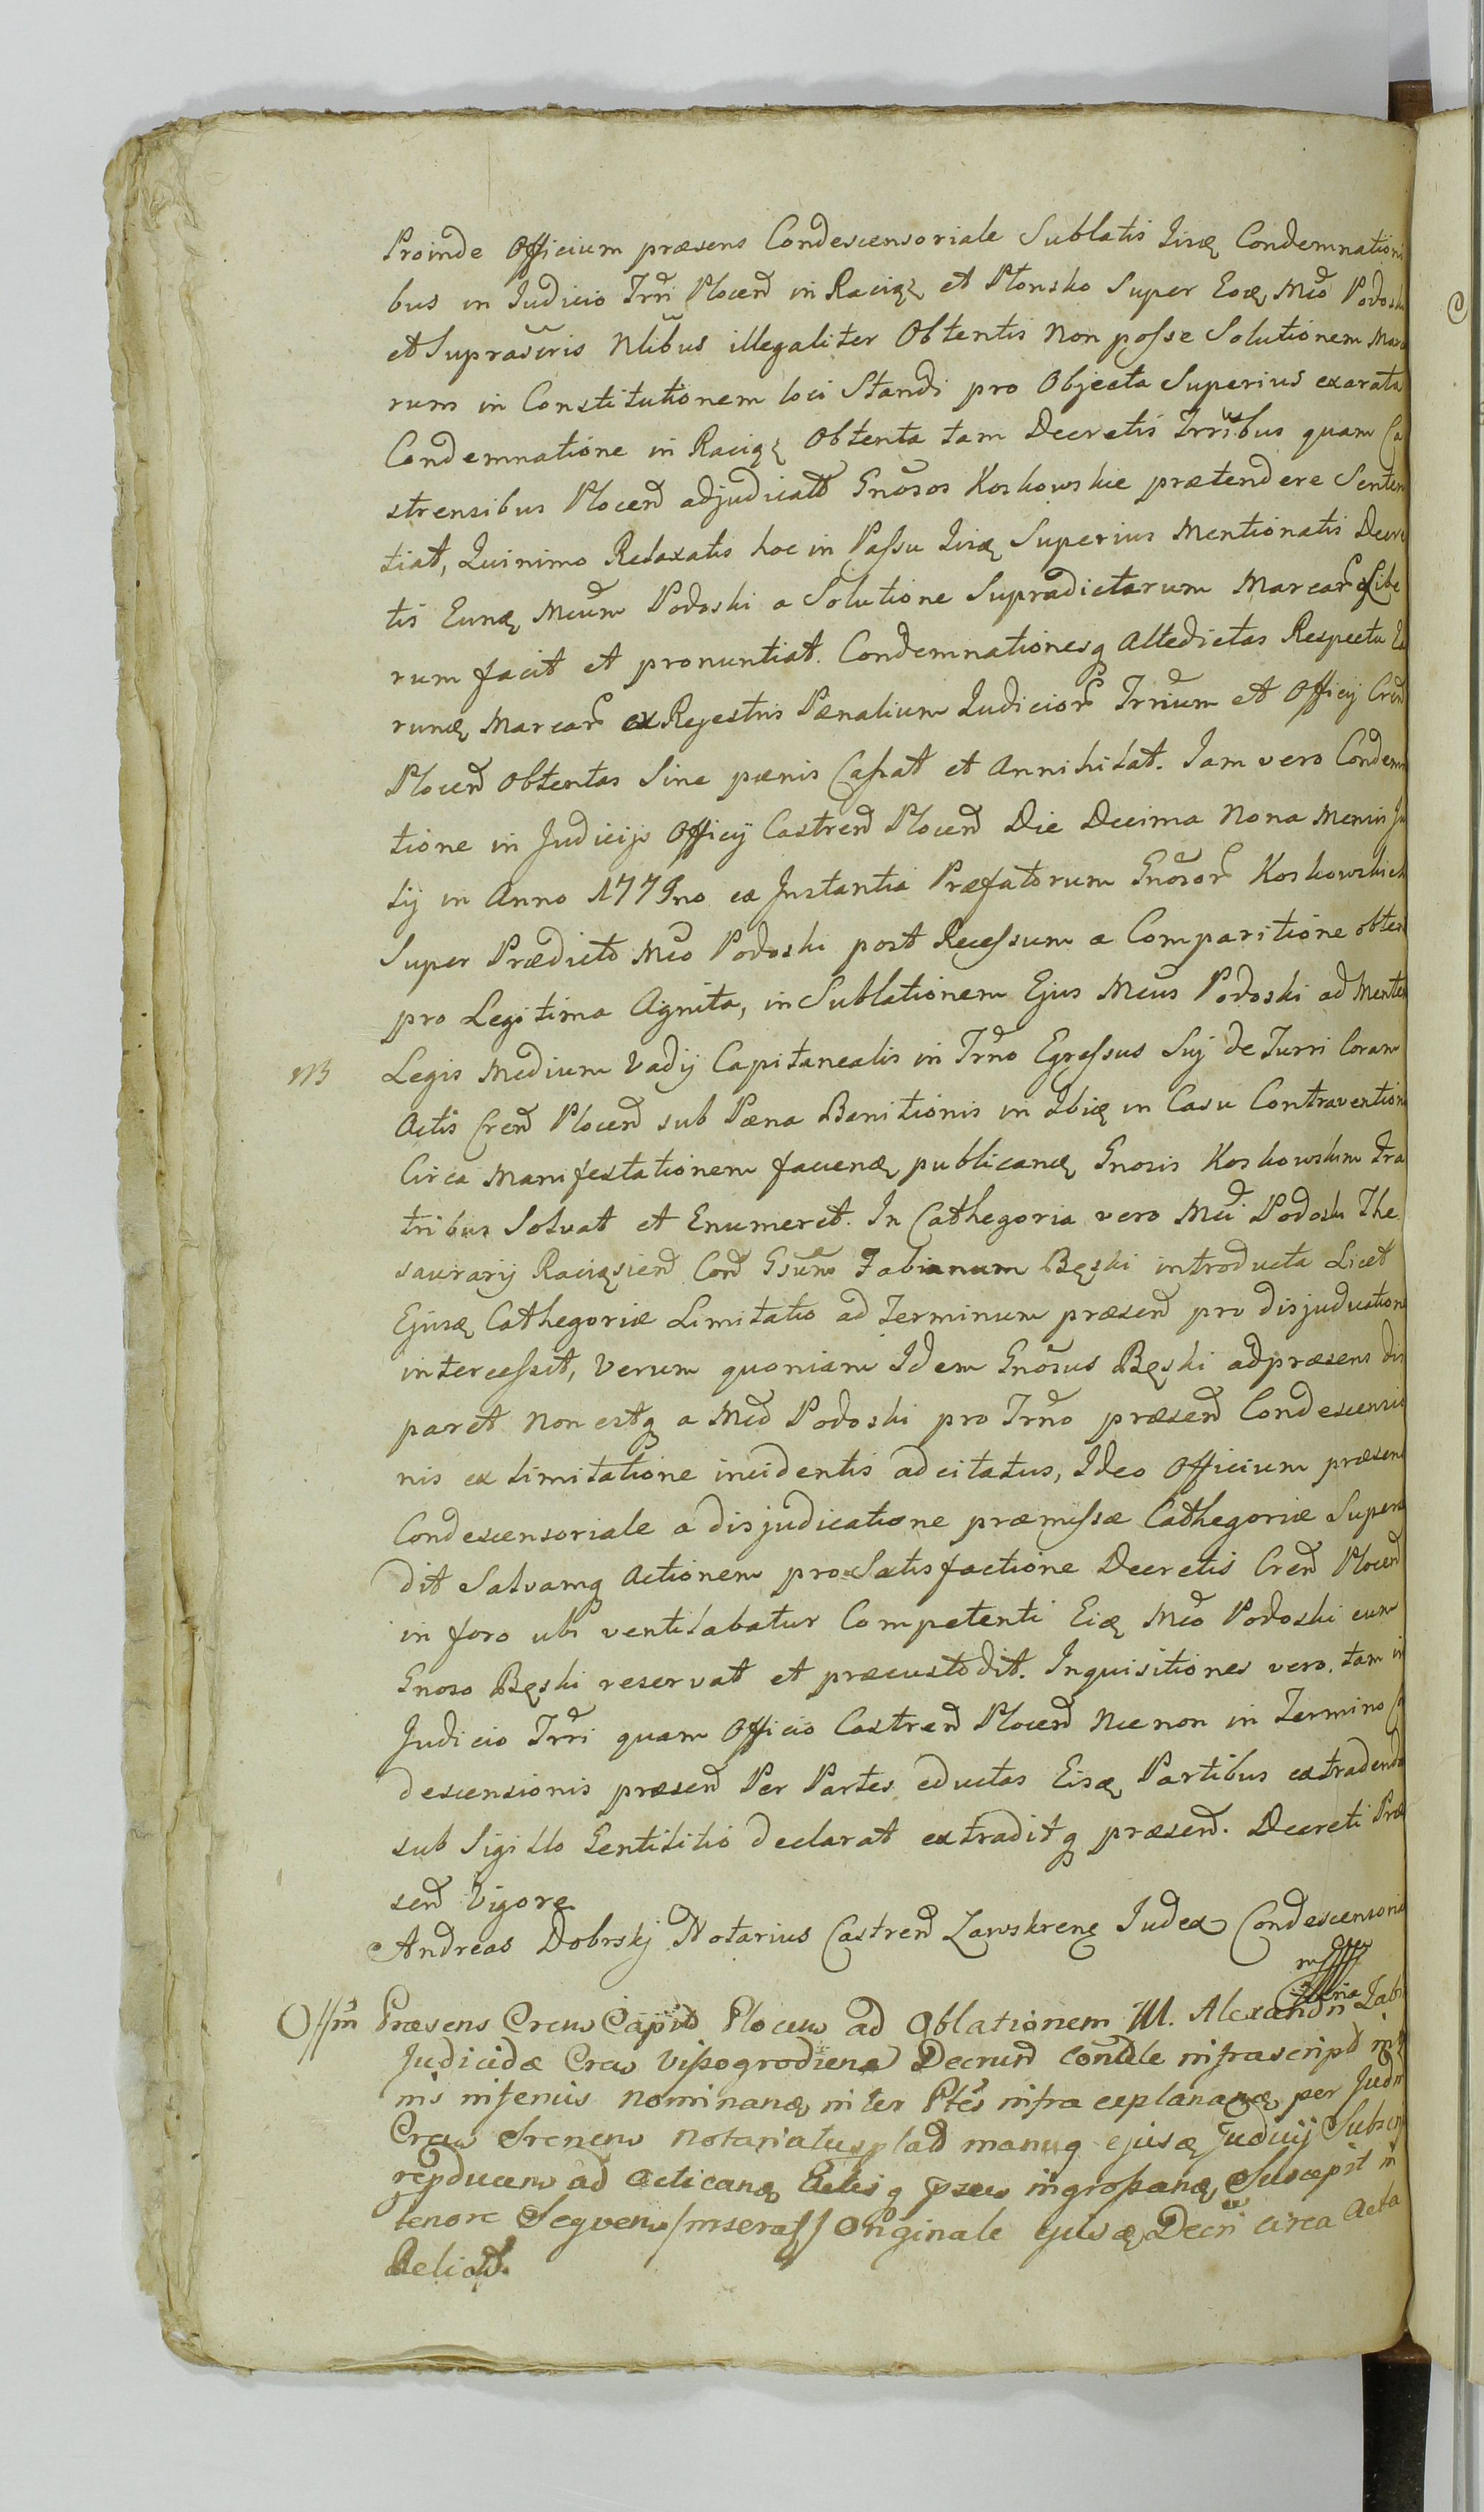 Proinde Officium præsens Condescensoriale Sublatis Iisdę Condemnationi
bus in Judicio Trri Plocen in Raciąż et Płonsko Super Eodę Mco Podoski
et Suprascris Nlibus illegaliter Obtentis Non posse Solutionem Marca
rum in Constitutionem loci Standi pro Objecta Superius exarata
Condemnatione in Raciąż Obtenta tam Decretis Trribus quam Ca
strensibus Plocen adjudicat Gnosos Koskowskie prætendere Senten
tiat, Quinimo Relaxatis hoc in Passu Iisdę Superius Mentionatis Decre
tis Eundę Mcum Podoski a Solutione Supradictarum Marcar Libe
rum facit et pronuntiat. Condemnationesq Altedictas Respectu Ea
rundę Marcar ex Regestris Pænalium Iudicior Trrium et Officij Cren
Plocen Obtentas Sine pænis Cassat et Annihilat. Iam vero Condemna
tione in Judicijs Officij Castren Plocen Die Decima Nona Mensis Ju
lij in Anno 1779no ex Instantia Præfatorum Gnosor Koskowskich
Super Prædicto Mco Podoski post Recessum a Comparitione obten
pro Legitima Agnita, in Sublationem Ejus Mcus Podoski ad Mentem
Legis Medium Vadij Capitanealis in Trno Egressus Suj de Turri Coram
Actis Cren Plocen sub Pæna Banitionis in Ibidę in Casu Contraventionis
Circa Manifestationem faciendę publicandę Gnosis Koskowskim Fra
tribus Solvat et Enumeret. In Cathegoria vero Mci Podoski The
saurarij Raciązien Con Gsum Fabianum Bęski introducta Licet
Ejusdę Cathegoriæ Limitatio ad Terminum præsen pro disjudicatione
intercessit, Verum quoniam Idem Gnosus Bęski adpræsens dis
paret Non estq a Mco Podoski pro Trno præsen Condescensio
nis ex limitatione incidentis adcitatus, Ideo Officium præsens
Condescensoriale a disjudicatione præmissæ Cathegoriæ Superse
dit Salvamq Actionem pro Satisfactione Decretis Cren Plocen
in foro ubi ventilabatur Competenti Eidę Mco Podoski cum
Gnoso Bęski reservat et præcustodit. Inquisitiones vero, tam in
Judicio Trri quam Officio Castren Plocen Necnon in Termino Con
descensionis præsen Per Partes eductas Eisdę Partibus extradendas
sub Sigillo Gentilitio declarat extraditq præsen. Decreti Præ
sen Vigore
Andreas Dobrskj Notarius Castren Zawskrenę Iudex Condescensoria
Præsens Cren Capit Plocen ad Oblationem M. Alexandri Zab
Judicidæ Cren Vissogrodien Decrum infrascript
nis inferius nominandę inter Ptes infra explanandę per Judm
Cren Srenen manuq ejusdę Judicij Subscri
ad Acticandę Actisq ingrossandę Suscepit in
tenore Seqven Originale ejusdę Decri circa Acta
Relict.